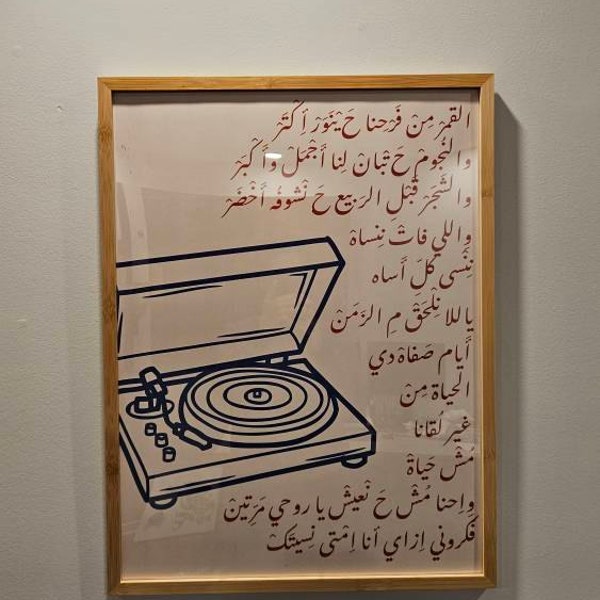 القمَرْ مِنْ فَرَحنا حَ يْنَوَرْ أكْتَرْ
والنُجومْ حَ تْبانْ لِنا أَجْمَلْ وأَكْبَرْ
والشَجَرْ قَبْلِ الربيع حَ نْشوفُه أَخْضَرْ
واللي فاتْ نِنساهْ
نِنْسى كلّ أَساه
ياللا نِلْحَقْ مِ الزَمَنْ
أَيام صَفاهْ دي
الحياة مِنْ
غير لُقانا
مُشْ حَياةْ
وِاحنا مُشْ حَ نْعيشْ يا روحي مَرِتينْ
فَكَروني اِزاي أنا اِمْتى نِسيتَكْ